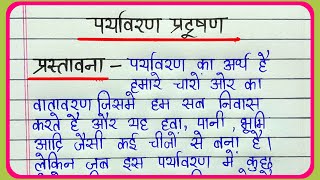 पर्यावरण प्रदूषण
प्रस्तावना – पर्यावरण का अर्थ है
हमारे चारों ओर का
वातावरण जिसमें हम सब निवास
करते है और यह हवा, पानी, भूमि
आदि जैसी कई चीजों से बना है।
लेकिन जब इस पर्यावरण में कुछ